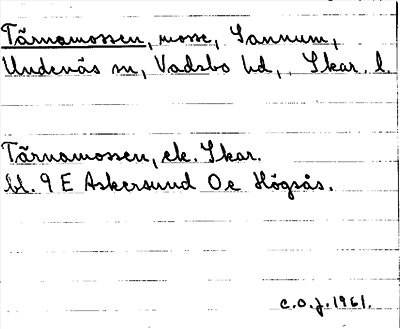 Tärnamossen, mosse, Sannum,
Undenäs sn, Vadsbo hd, Skar. l.
Tärnamossen, ek. Skar.
bl. 9 E Askersund Oe Högsås.
C.O.J. 1961.